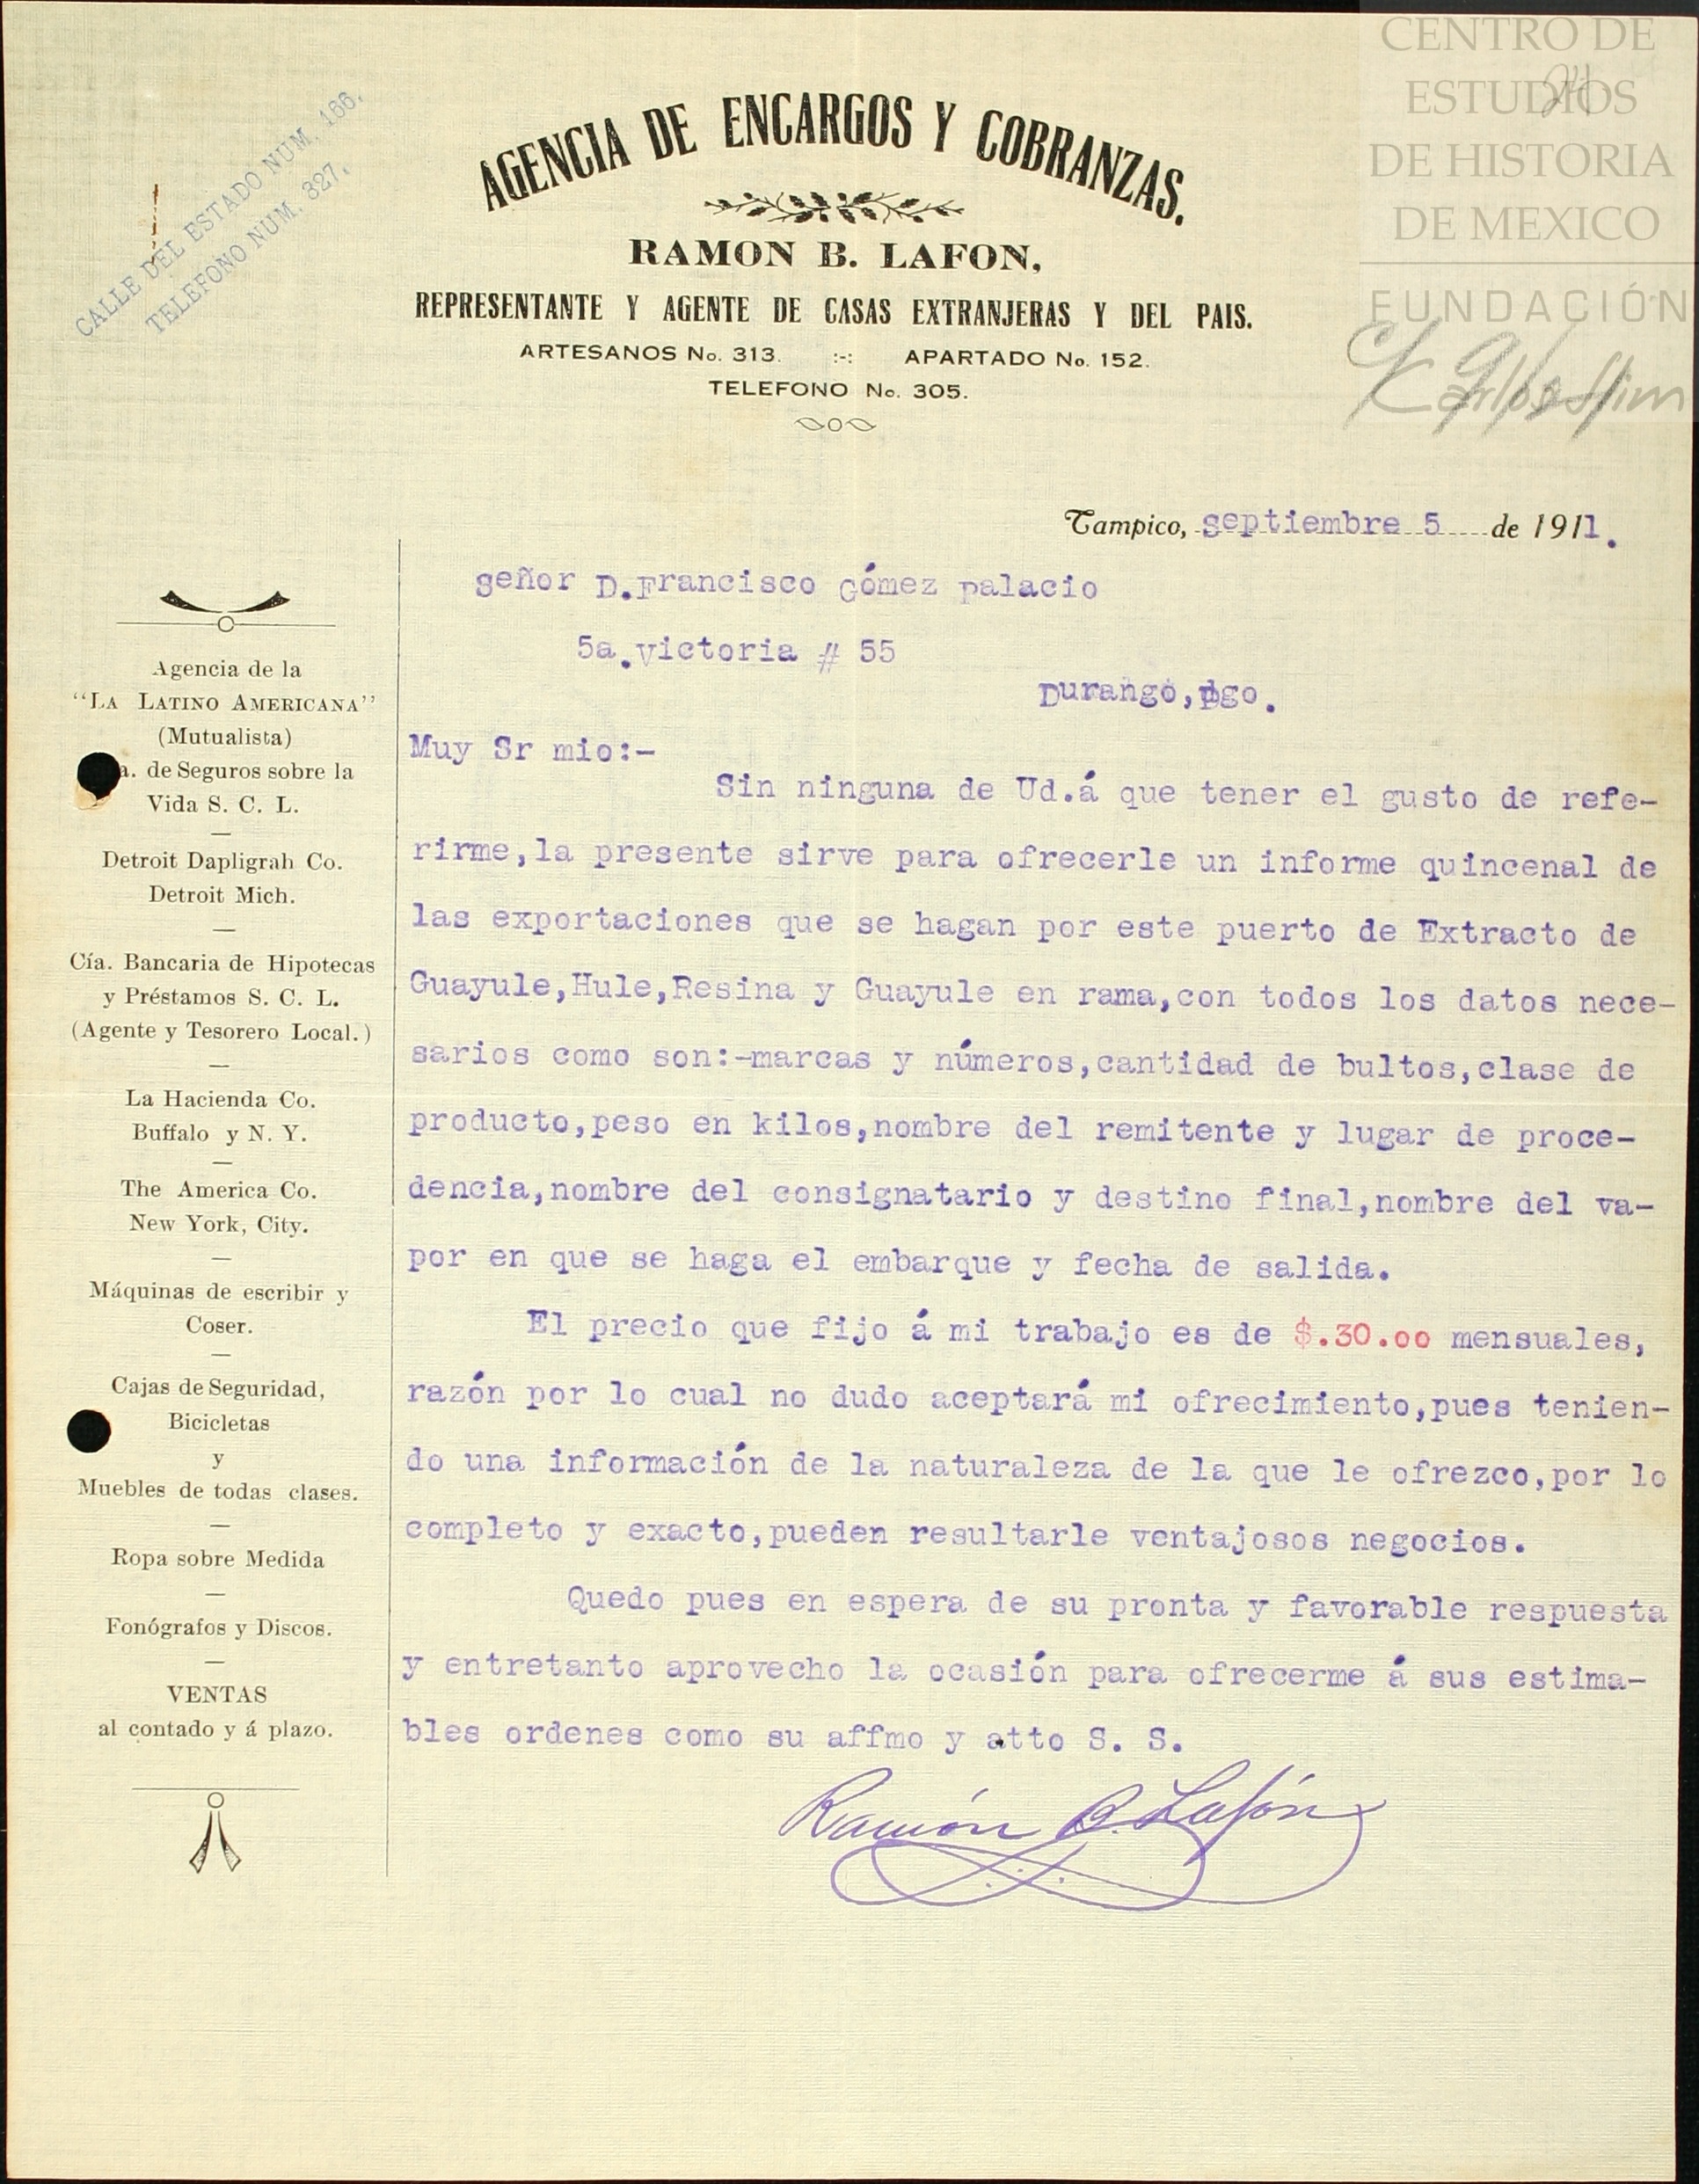 CENTRO DE
ESTUDIOS
DE HISTORIA
DE MEXICO
FUNDACIÓN
Carlos Slim
CALLE DEL ESTADO NUM. 166.
TELEFONO NUM. 327.
AGENCIA DE ENCARGOS Y COBRANZAS.
RAMON B. LAFON,
REPRESENTANTE Y AGENTE DE CASAS EXTRANJERAS Y DEL PAIS.
ARTESANOS No. 313. :-: APARTADO No. 152.
TELEFONO No. 305.
Tampico, septiembre 5 de 1911.
señor D.Francisco Gómez Palacio
5a.victoria # 55
Durango,Dgo.
Muy Sr mio:-
Sin ninguna de Ud.á que tener el gusto de refe-
rirme,la presente sirve para ofrecerle un informe quincenal de
las exportaciones que se hagan por este puerto de Extracto de
Guayule,Hule,Resina y Guayule en rama,con todos los datos nece-
sarios como son:-marcas y números,cantidad de bultos,clase de
producto,peso en kilos,nombre del remitente y lugar de proce-
dencia,nombre del consignatario y destino final,nombre del va-
por en que se haga el embarque y fecha de salida.
El precio que fijo á mi trabajo es de $.30.00 mensuales,
razón por lo cual no dudo aceptará mi ofrecimiento,pues tenien-
do una información de la naturaleza de la que le ofrezco,por lo
completo y exacto,pueden resultarle ventajosos negocios.
Quedo pues en espera de su pronta y favorable respuesta
y entretanto aprovecho la ocasión para ofrecerme á sus estima-
bles ordenes como su affmo y atto S. S.
Ramón B. Lafón
Agencia de la
"LA LATINO AMERICANA"
(Mutualista)
a. de Seguros sobre la
Vida S. C. L.
Detroit Dapligrah Co.
Detroit Mich.
Cía. Bancaria de Hipotecas
y Préstamos S. C. L.
(Agente y Tesorero Local.)
La Hacienda Co.
Buffalo y N. Y.
The America Co.
New York, City.
Máquinas de escribir y
Coser.
Cajas de Seguridad,
Bicicletas
y
Muebles de todas clases.
Ropa sobre Medida
Fonógrafos y Discos.
VENTAS
al contado y á plazo.